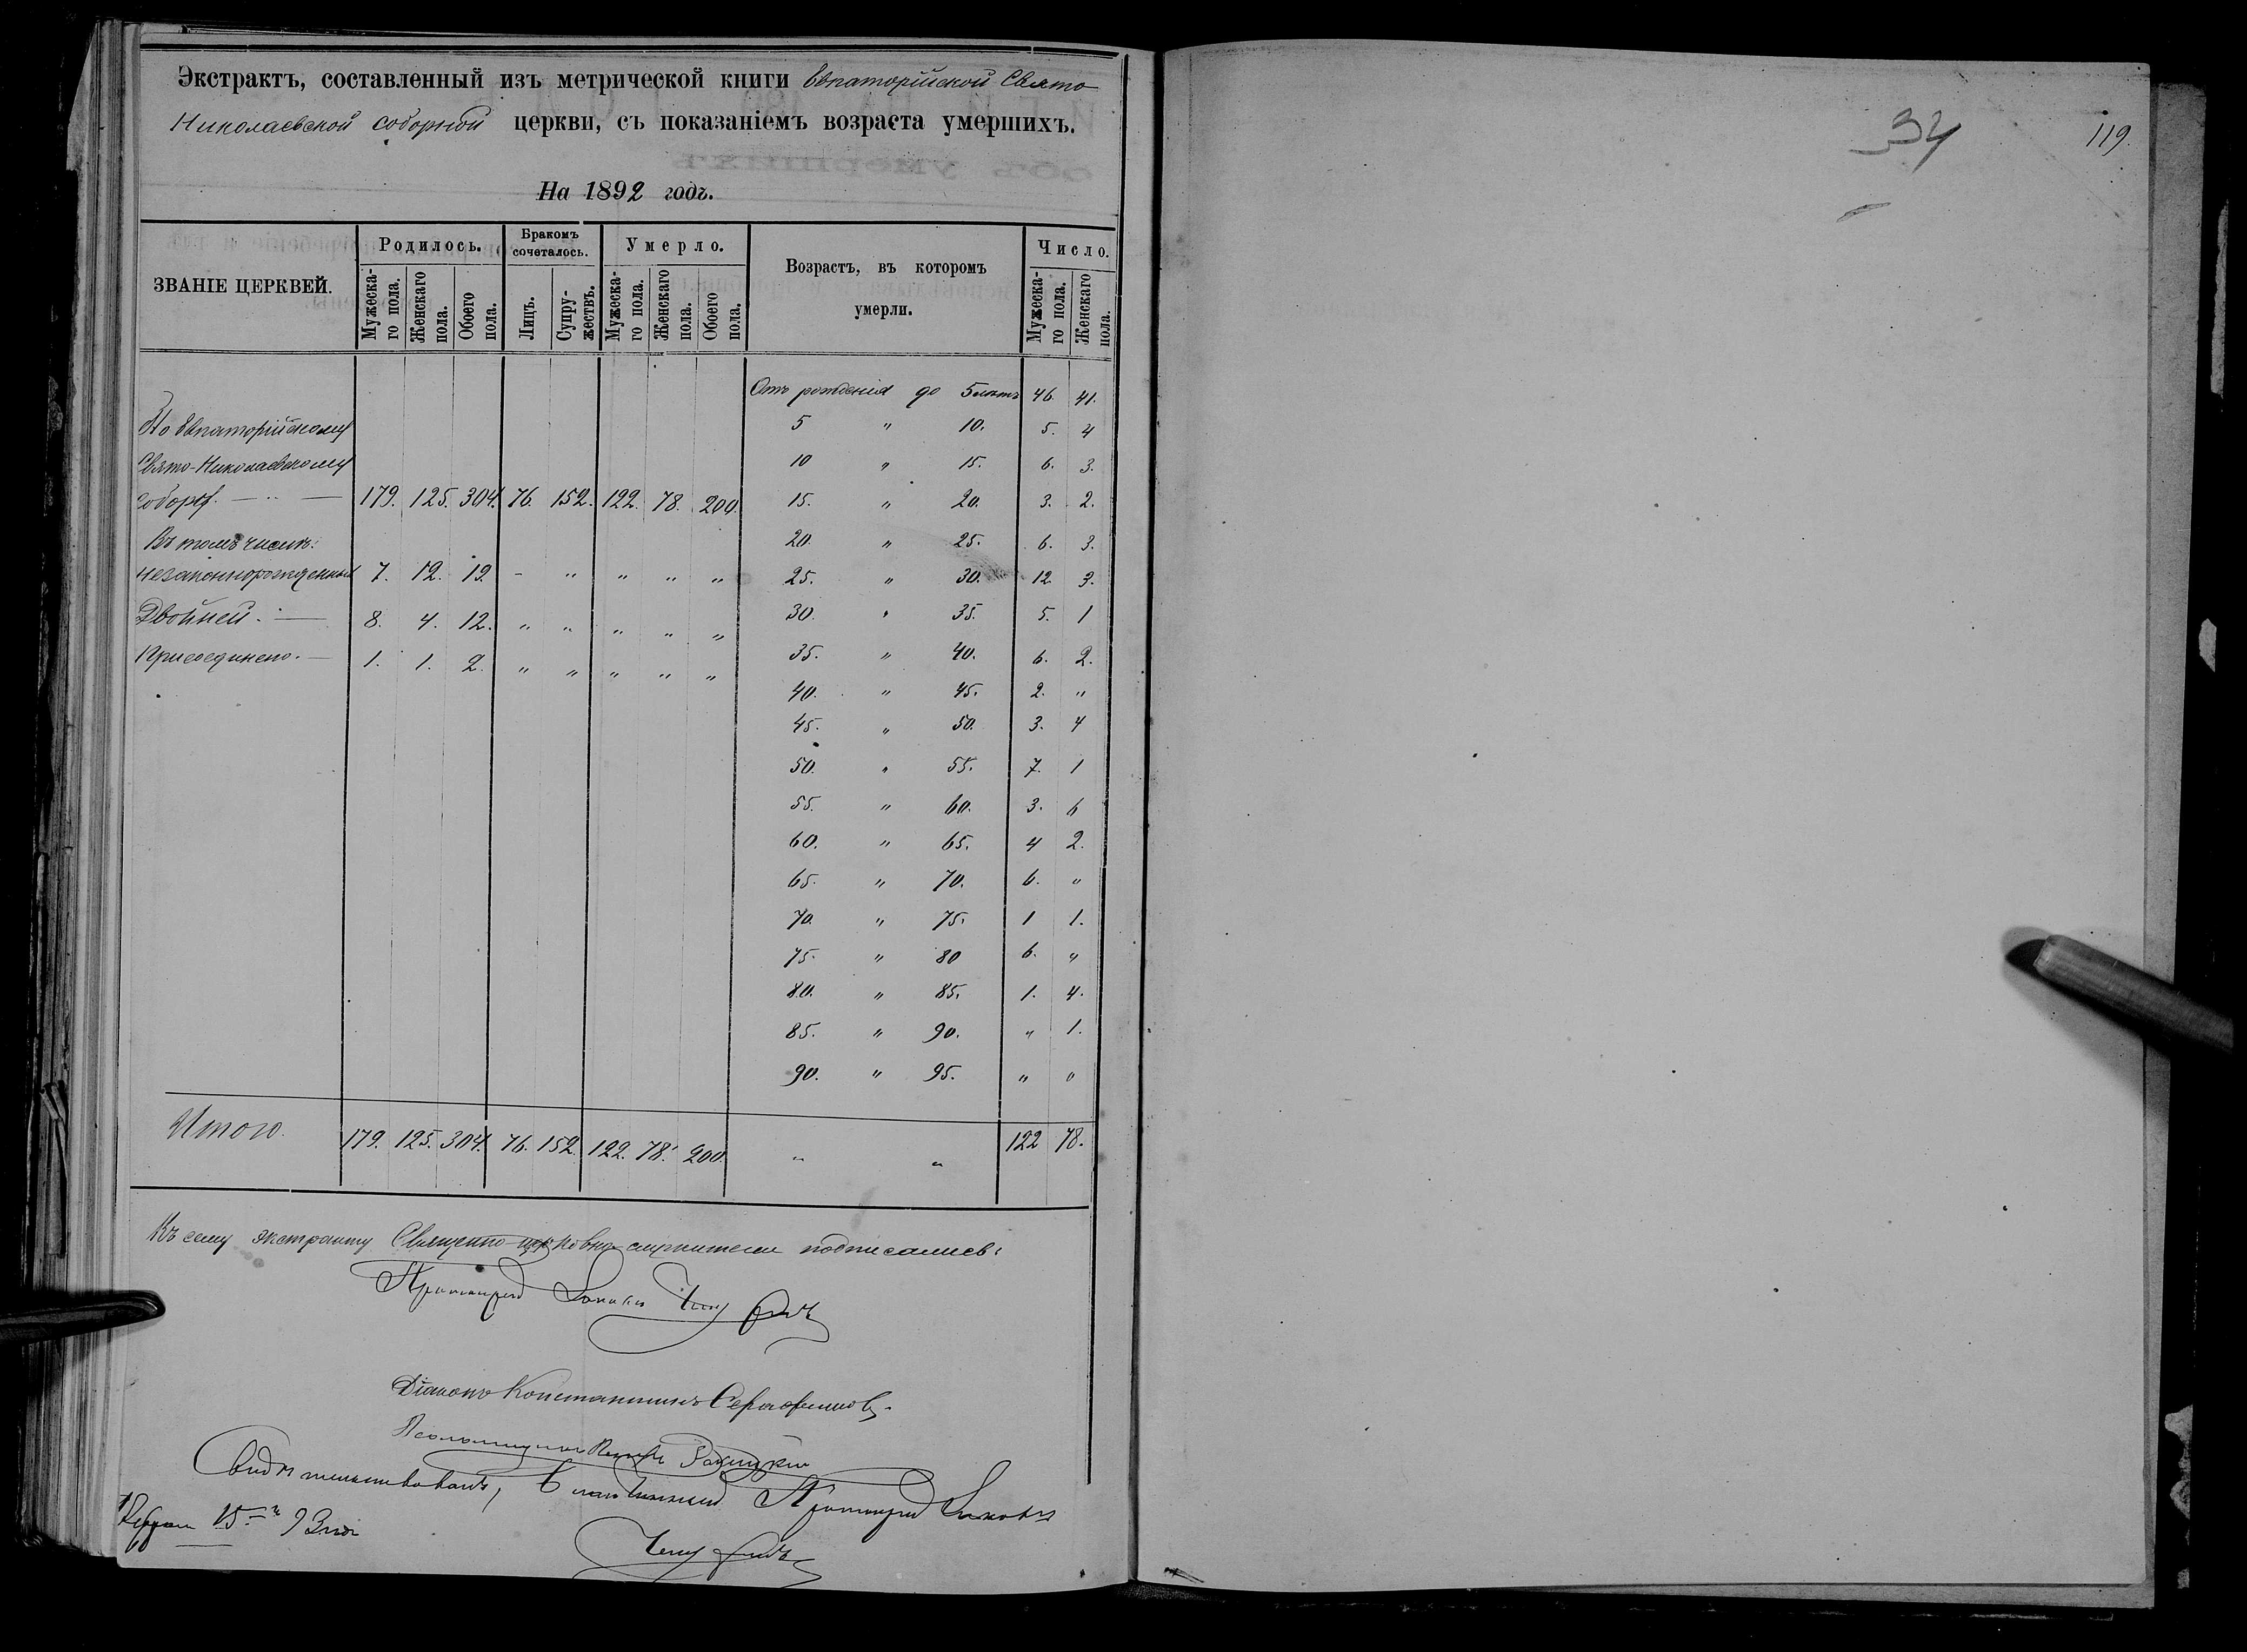 Экстрактъ, составленный изъ метрической книги Евпаторійской Свято
Николаевской соборной церкви, съ показаніемъ возраста умершихъ.
На 1892 годъ.
ЗВАНІЕ ЦЕРКВЕЙ. Родилось. Бракомъ сочеталось. Умерло. Возрастъ, въ которомъ умерли. Число.
Мужеска-го пола. Женскаго пола. Обоего пола. Лицъ. Супру-жествъ. Мужеска-го пола. Женскаго пола. Обоего пола. Мужеска-го пола. Женскаго пола.
Отъ рожденія до 5 лѣтъ 46. 41.
По Евпаторійскому 5 " 10. 5. 4
Свято-Николаевскому 10 " 15. 6. 3.
собору. 179. 125. 304. 76. 152. 122. 78. 200. 15. " 20. 3. 2.
Въ томъ числѣ: 20. " 25. 6. 3.
незаконнорожденныхъ 7. 12. 19. - " " " " 25. " 30. 12. 3.
Двойней. — 8. 4. 12. " " " " " 30. " 35. 5. 1
Присоединено. — 1. 1. 2. " " " " " 35. " 40. 6. 2.
40. " 45. 2. "
45. " 50. 3. 4
50. " 55. 7. 1
55. " 60. 3. 6
60. " 65. 4 2.
65. " 70. 6. "
70. " 75. 1 1.
75. " 80 6. "
80. " 85. 1. 4.
85. " 90. " 1.
90. " 95. " "
Итого. 179. 125. 304. 76. 152. 122. 78. 200. " " 122 78.
Къ сему экстракту Священно-церковно-служители подписались:
Протоіерей Іаковъ
Діаконъ Константинъ Серафимовъ.
Псаломщикъ
Свидѣтельствовалъ, Благочинный Протоіерей Іаковъ
15
34
119.